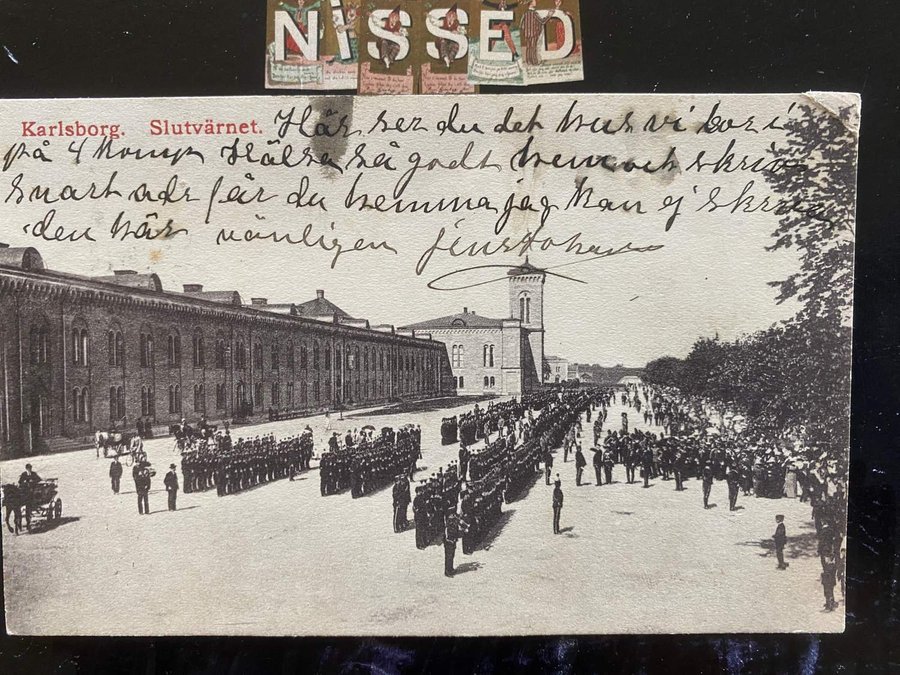 NiSSED
Karlsborg. Slutvärnet. Här ser du det hus vi bor i
på 4 Komp Hälsa så godt hem och skriv
snart ads får du hemma jag kan ej skriva
den här vänligen